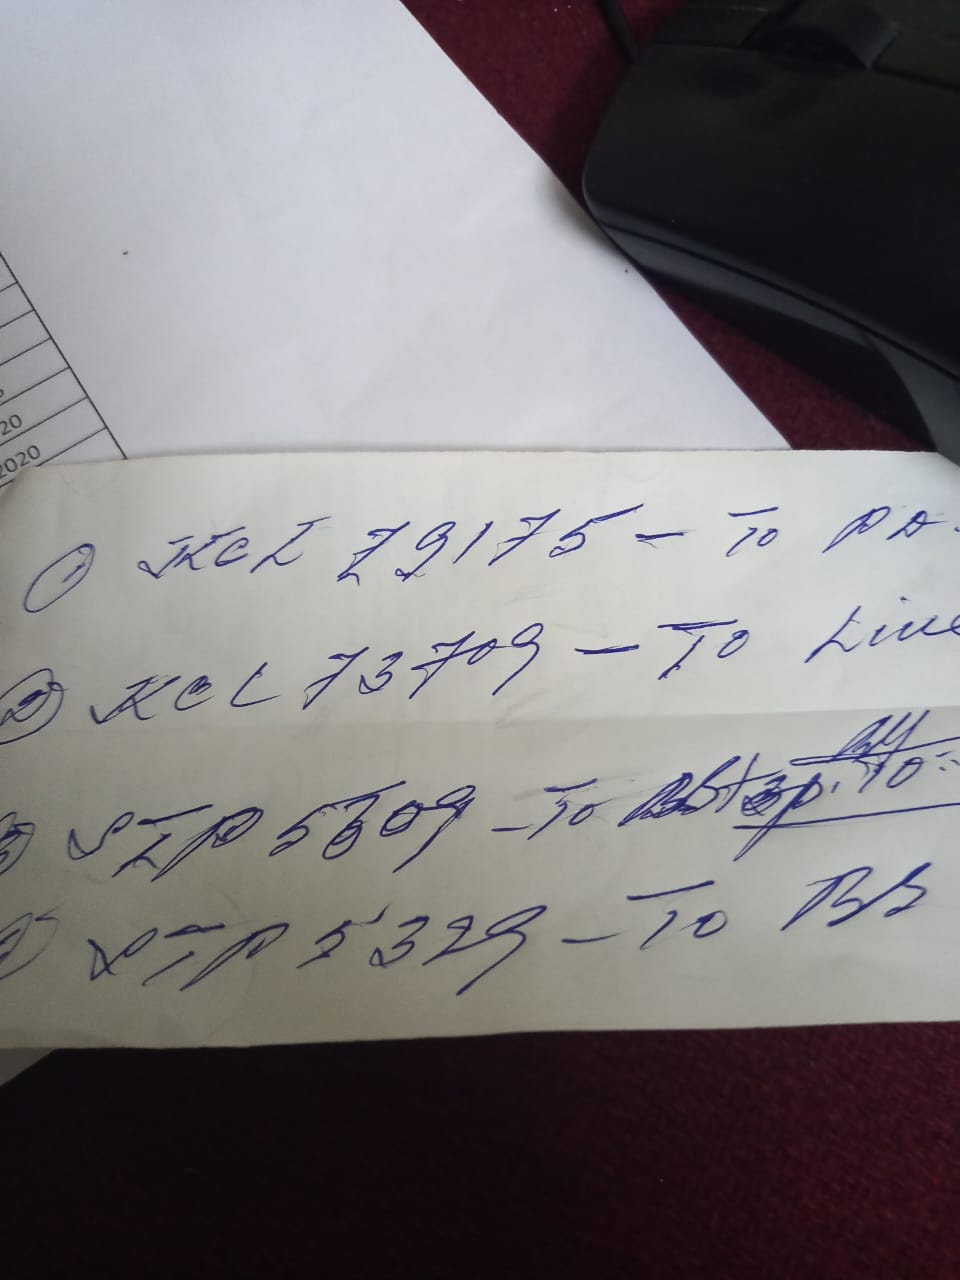 20
2020
① KCL 79175 – To PA.
② KCL 73709 – To Line
③ STP 5309 – To
④ STP 5329 – To BS